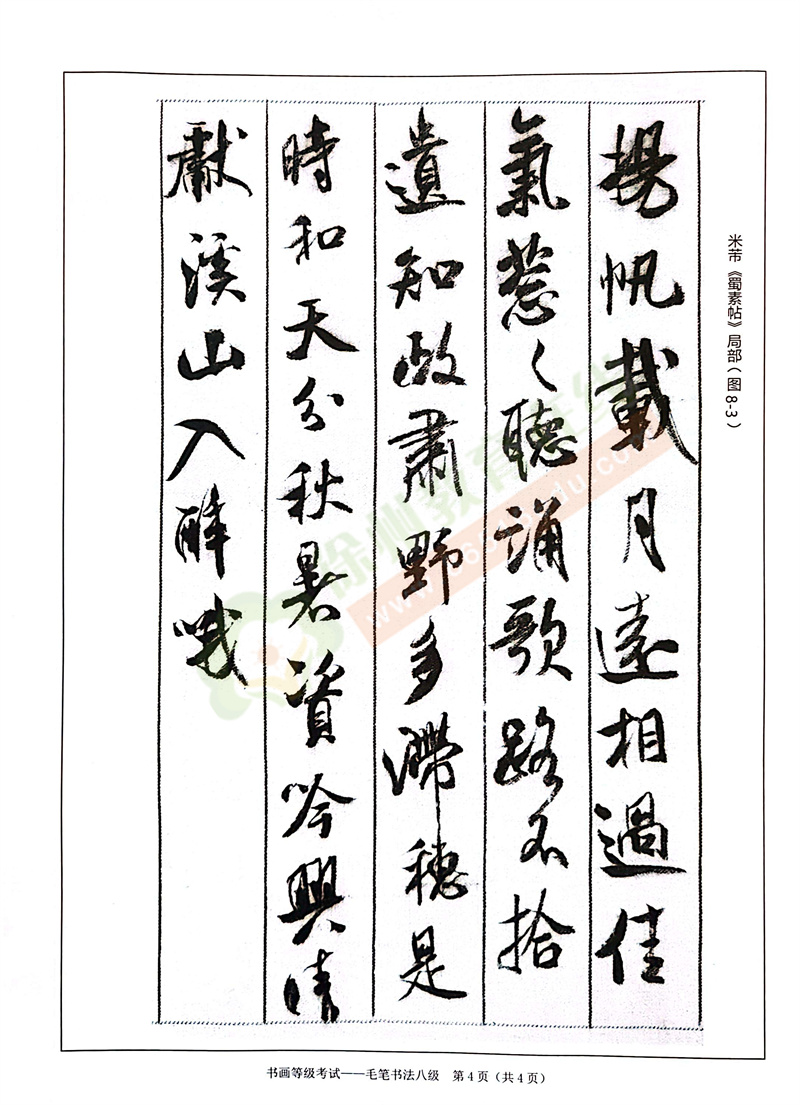 米芾《蜀素帖》局部(图8-3)
揚帆載月遠相過佳
氣葱〻聽誦歌路不拾
遺知政肅野多滯穗是
時和天分秋暑資吟興晴
獻溪山入醉哦
徐州教育在线
书画等级考试——毛笔书法八级 第4页(共4页)